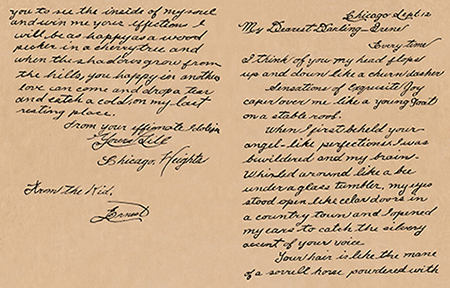 Chicago Sept. 12
My Dearest Darling Irene
Every time
I think of you my head flops
up and down like a churn dasher
Sensations of Exquisite Joy
caper over me like a young goat
on a stable roof.
When I first beheld your
angel-like perfections I was
bewildered and my brain
Whirled around like a bee
under a glass tumbler, my eyes
stood open like celar doors in
a country town and I opened
my ears to catch the silvery
acunt of your voice
Your hair is like the mane
of a sorrell horse powdered with
you to see the inside of my soul
and win me your effictions I
will be as happy as a wood
pecker in a cherry tree and
when the shadows grow from
the hills, you happy in another
love can come and drop a tear
and catch a cold on my last
resting place.
From your effionate
Yours Till
Chicago, Heights
From the Kid.
Ernest